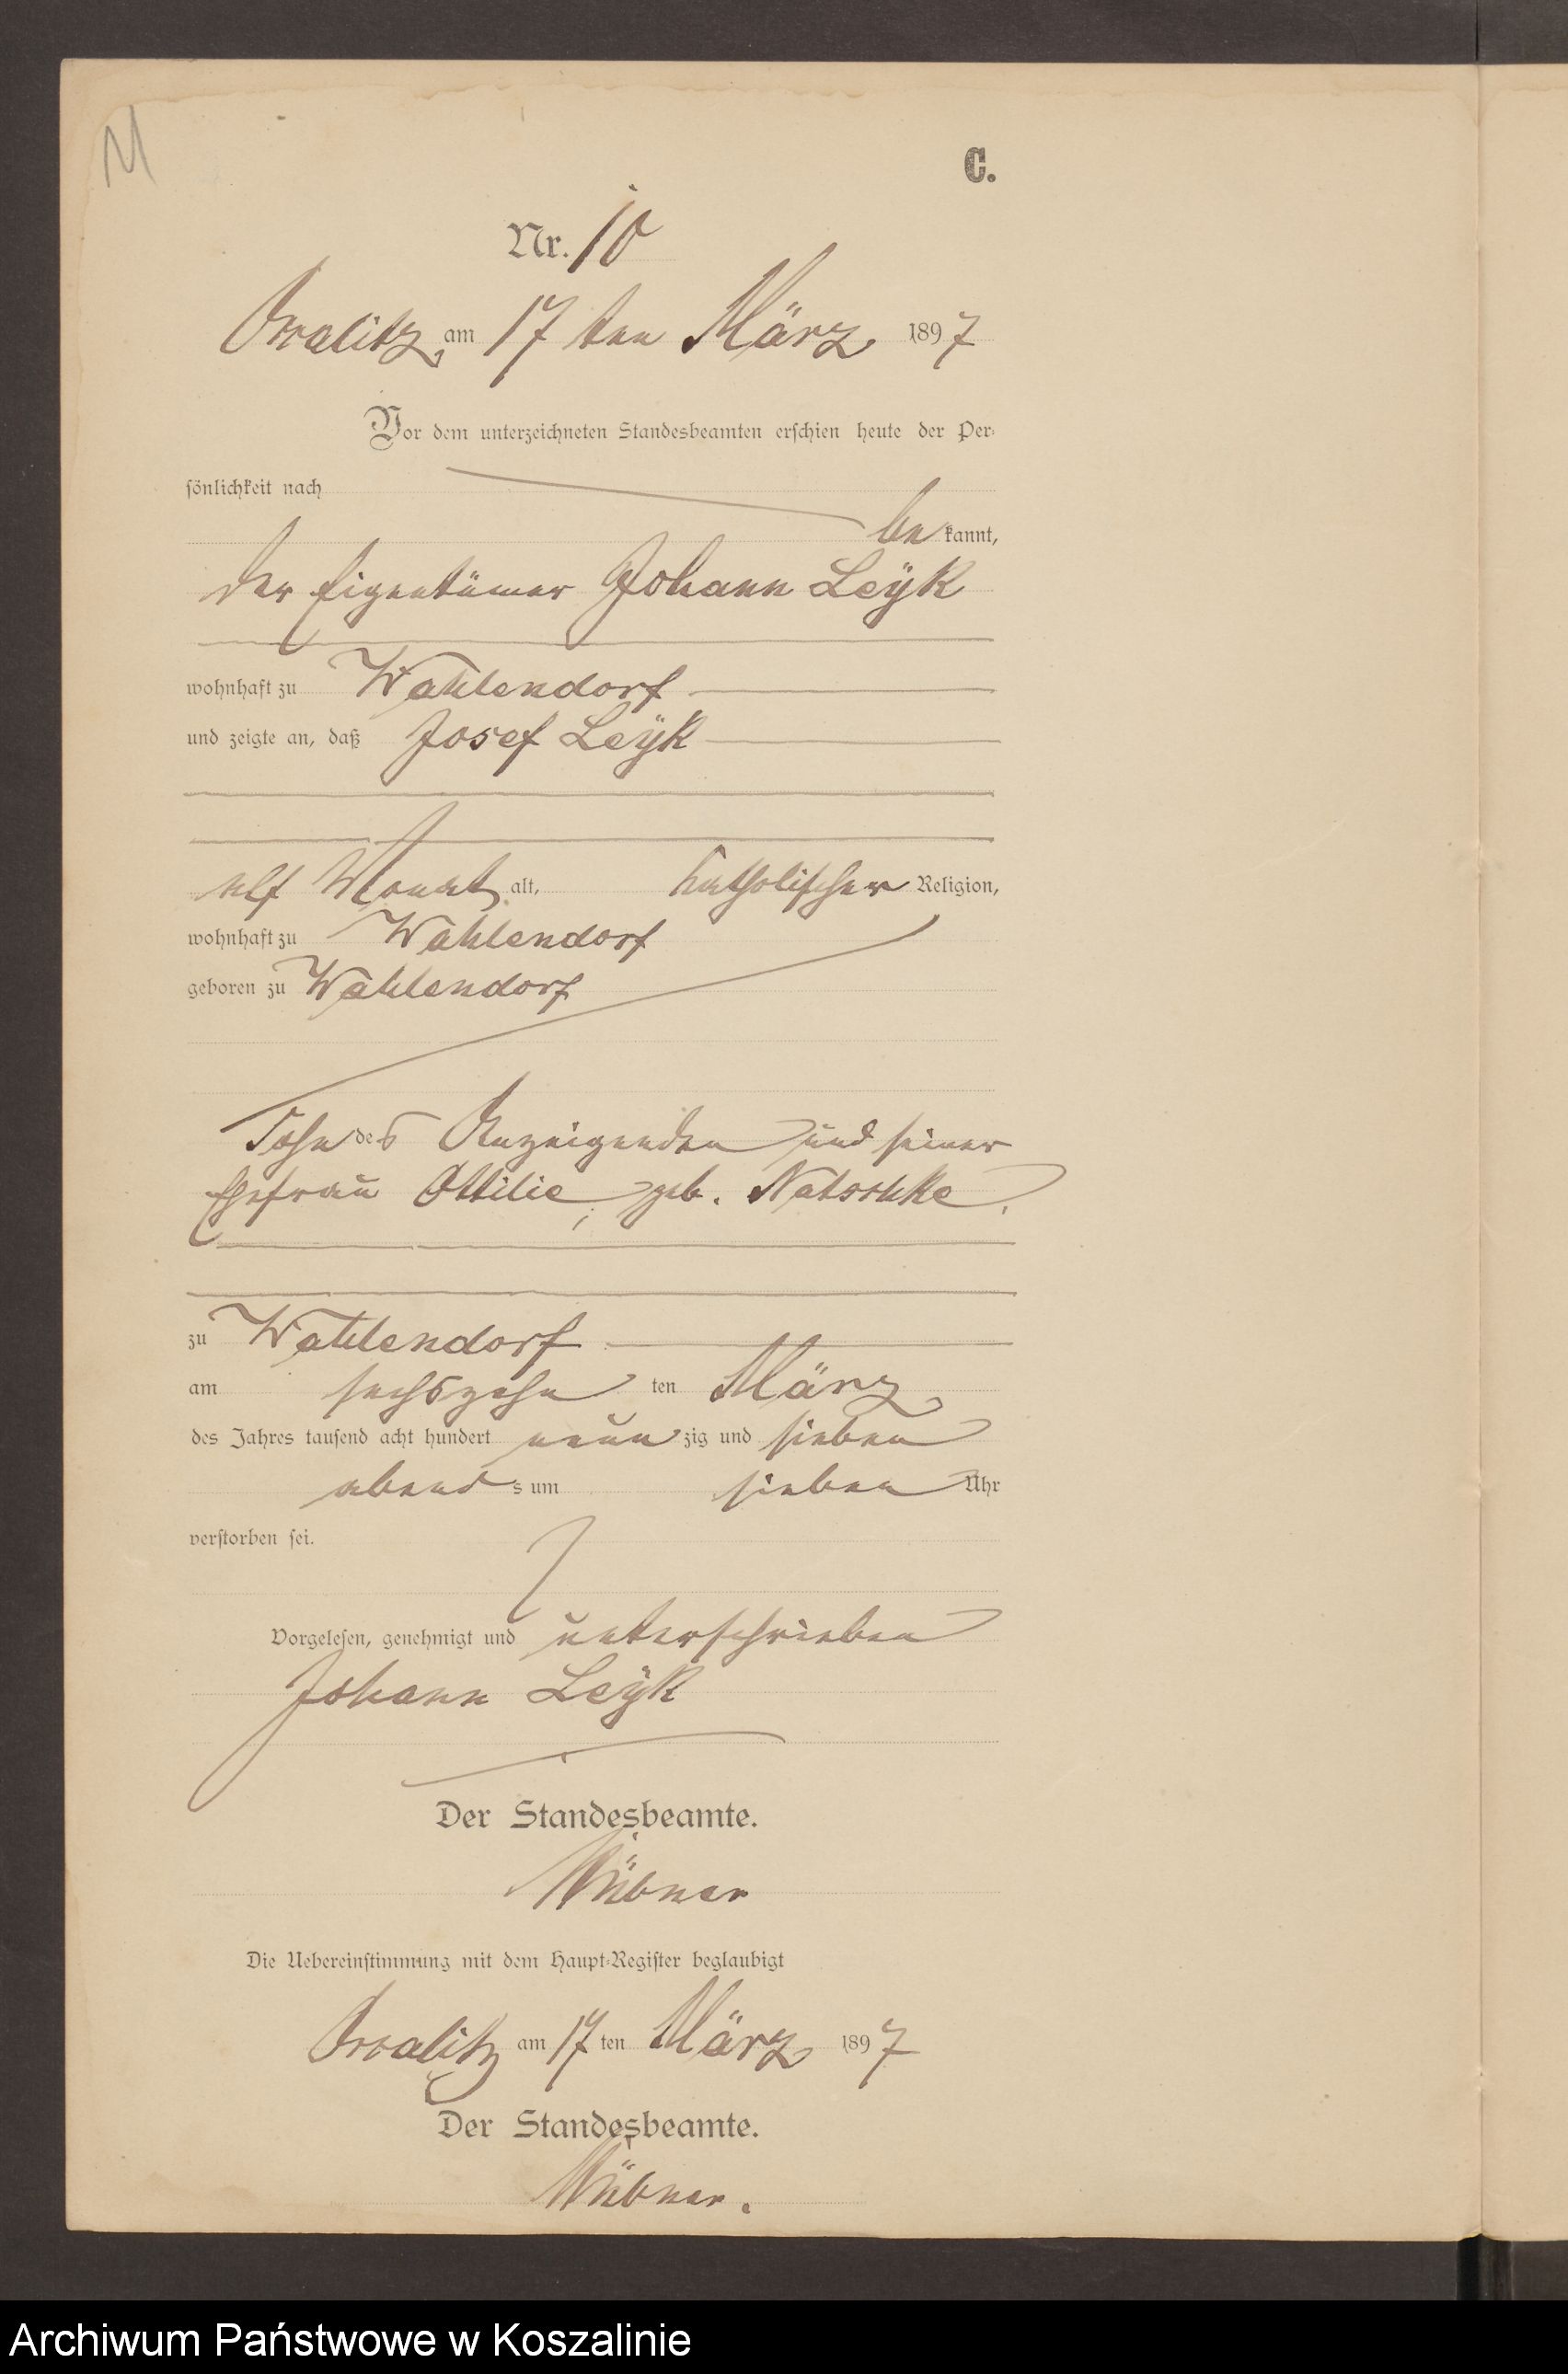 M
C.
Nr. 10
Oslalitz, am 17 ten März 1897
Vor dem unterzeichneten Standesbeamten erschien heute der Per-
sönlichkeit nach
be kannt,
der Eigentümer Johann Leÿk
wohnhaft zu Wahlendorf
und zeigte an, daß Josef Leÿk
elf Monat alt, katholischer Religion,
wohnhaft zu Wahlendorf
geboren zu Wahlendorf
Sohn des Anzeigenden und seiner
Ehefrau Ottilie, geb. Natschke.
zu Wahlendorf
am sechszehn ten März
des Jahres tausend acht hundert neun zig und sieben
abend s um sieben Uhr
verstorben sei.
Vorgelesen, genehmigt und unterschrieben
Johann Leÿk
Der Standesbeamte.
Die Uebereinstimmung mit dem Haupt-Register beglaubigt
am 17 ten März 1897
Der Standesbeamte.
Archiwum Państwowe w Koszalinie